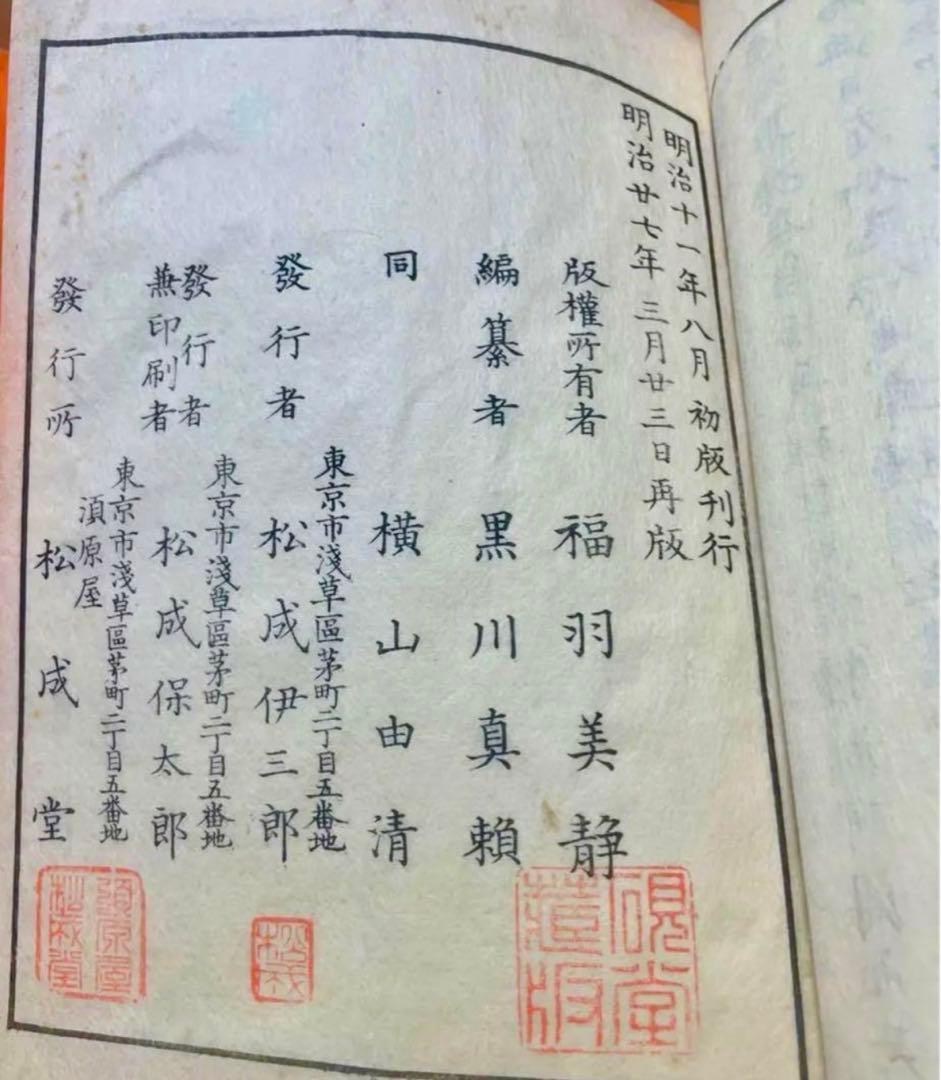 明治十一年八月初版刊行
明治廿七年三月廿三日再版
版權所有者 福羽美静
編纂者 黒川真賴
同 横山由清
東京市淺草區茅町二丁目五番地
發行者 松成伊三郎
東京市淺草區茅町二丁目五番地
發行者
兼印刷者 松成保太郎
東京市淺草區茅町二丁目五番地
須原屋
發行所 松成堂
硯堂
藏版
松成
須原屋
松成堂